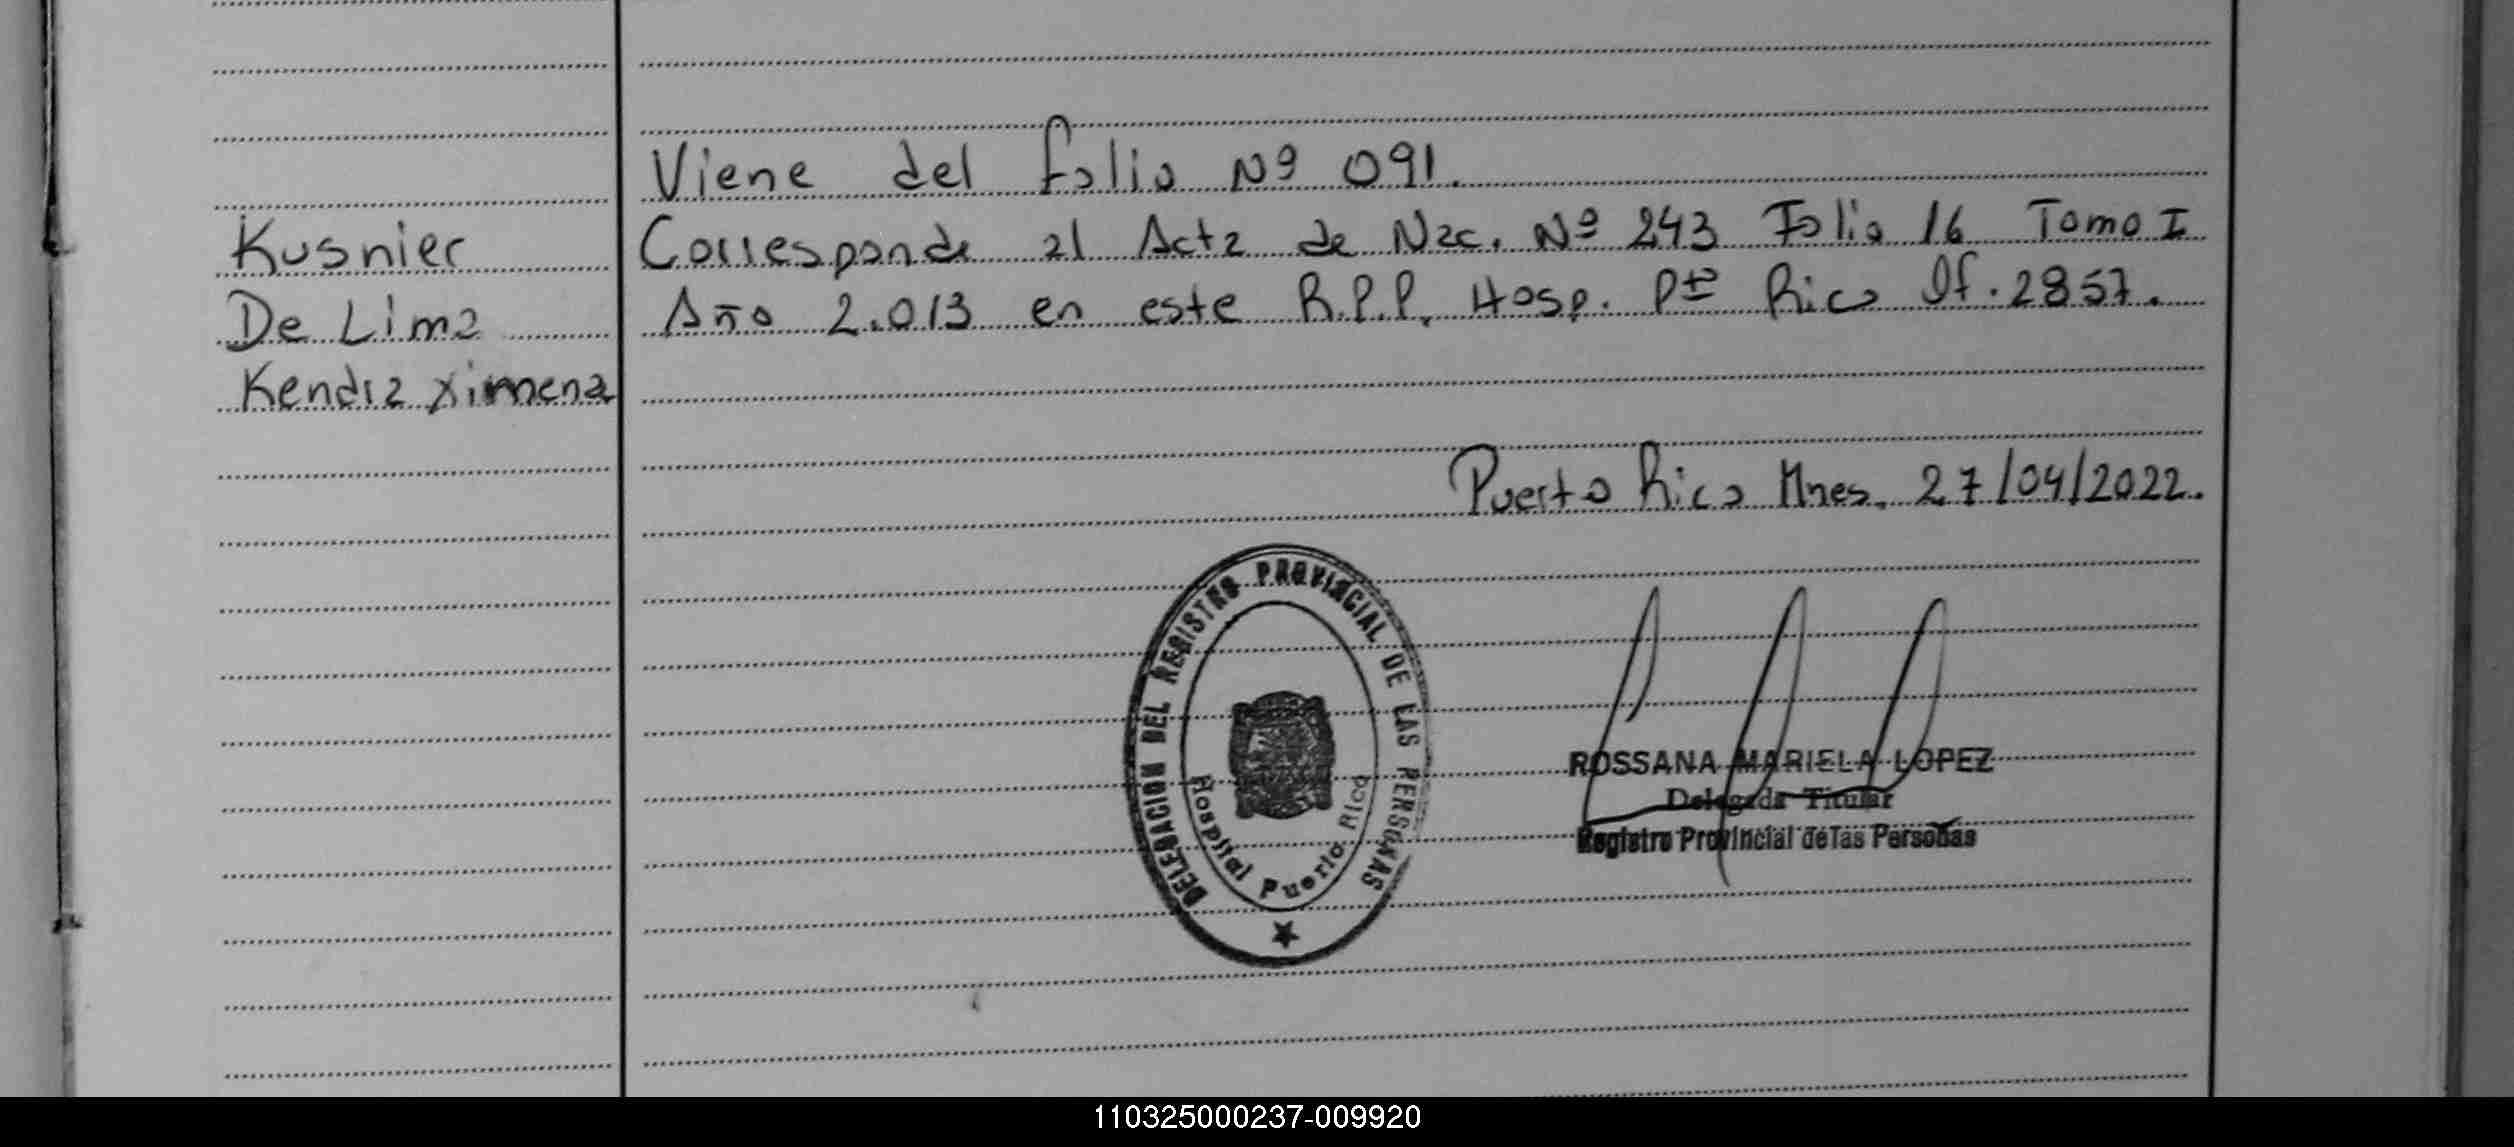 Viene del folio Nº 091.
Kusnier
Corresponde al Acta de Nac. Nº 243 Folio 16 Tomo I
De Lima
Año 2.013 en este R.P.P. Hosp. Pto Rico Of. 2857.
Kendra Ximena
Puerto Rico Mnes. 27/04/2022.
DELEGACION DEL REGISTRO PROVINCIAL DE LAS PERSONAS
Hospital Puerto Rico
ROSSANA MARIELA LOPEZ
Delegada Titular
Registro Provincial de las Personas
110325000237-009920